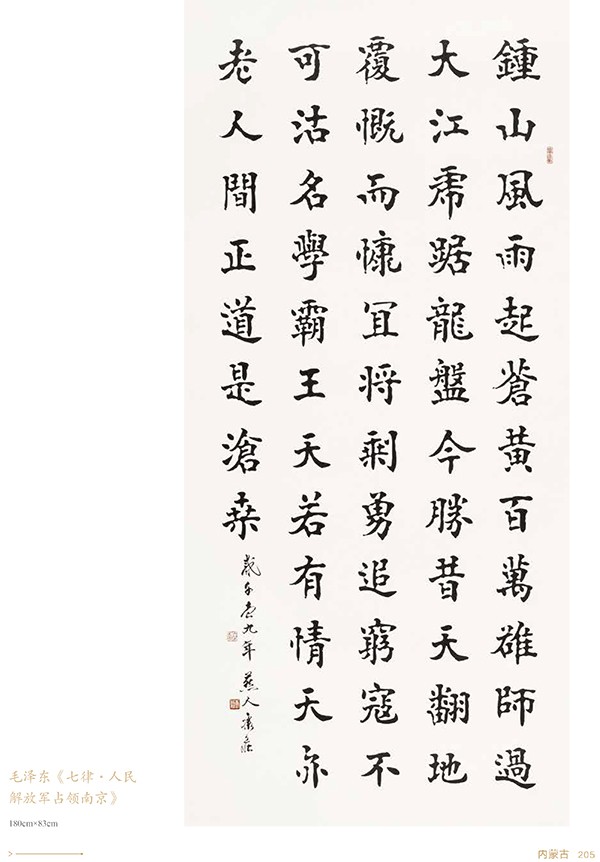 鍾山風雨起蒼黃百萬雄師過
大江虎踞龍盤今勝昔天翻地
覆慨而慷冝将剩勇追窮寇不
可沽名學霸王天若有情天亦
老人間正道是滄桒
九年 燕人
毛泽东《七律·人民
解放军占领南京》
180cm×83cm
内蒙古 205